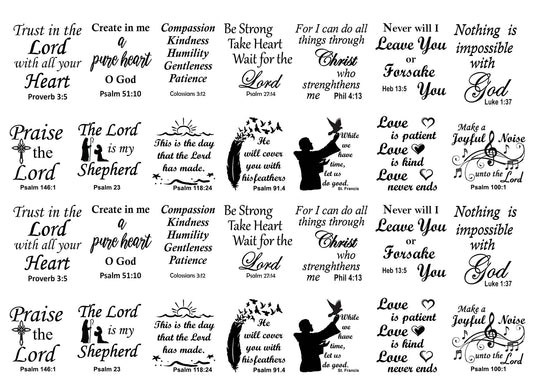 Trust in the
Lord
with all your
Heart
Proverb 3:5
Create in me
a
pure heart
O God
Psalm 51:10
Compassion
Kindness
Humility
Gentleness
Patience
Colossians 3:12
Be Strong
Take Heart
Wait for the
Lord
Psalm 27:14
For I can do all
things through
Christ
who
strenghthens
me Phil 4:13
Never will I
Leave You
or
Forsake
Heb 13:5 You
Nothing is
impossible
with
God
Luke 1:37
Praise
the
Lord
Psalm 146:1
The Lord
is my
Shepherd
Psalm 23
This is the day
that the Lord
has made.
Psalm 118:24
He
will cover
you with
hisfeathers
Psalm 91.4
While
we
have
time,
let us
do good.
St. Francis
Love
is patient
Love
is kind
Love
never ends
Make a
Joyful Noise
unto the Lord
Psalm 100:1
Trust in the
Lord
with all your
Heart
Proverb 3:5
Create in me
a
pure heart
O God
Psalm 51:10
Compassion
Kindness
Humility
Gentleness
Patience
Colossians 3:12
Be Strong
Take Heart
Wait for the
Lord
Psalm 27:14
For I can do all
things through
Christ
who
strenghthens
me Phil 4:13
Never will I
Leave You
or
Forsake
Heb 13:5 You
Nothing is
impossible
with
God
Luke 1:37
Praise
the
Lord
Psalm 146:1
The Lord
is my
Shepherd
Psalm 23
This is the day
that the Lord
has made.
Psalm 118:24
He
will cover
you with
hisfeathers
Psalm 91.4
While
we
have
time,
let us
do good.
St. Francis
Love
is patient
Love
is kind
Love
never ends
Make a
Joyful Noise
unto the Lord
Psalm 100:1